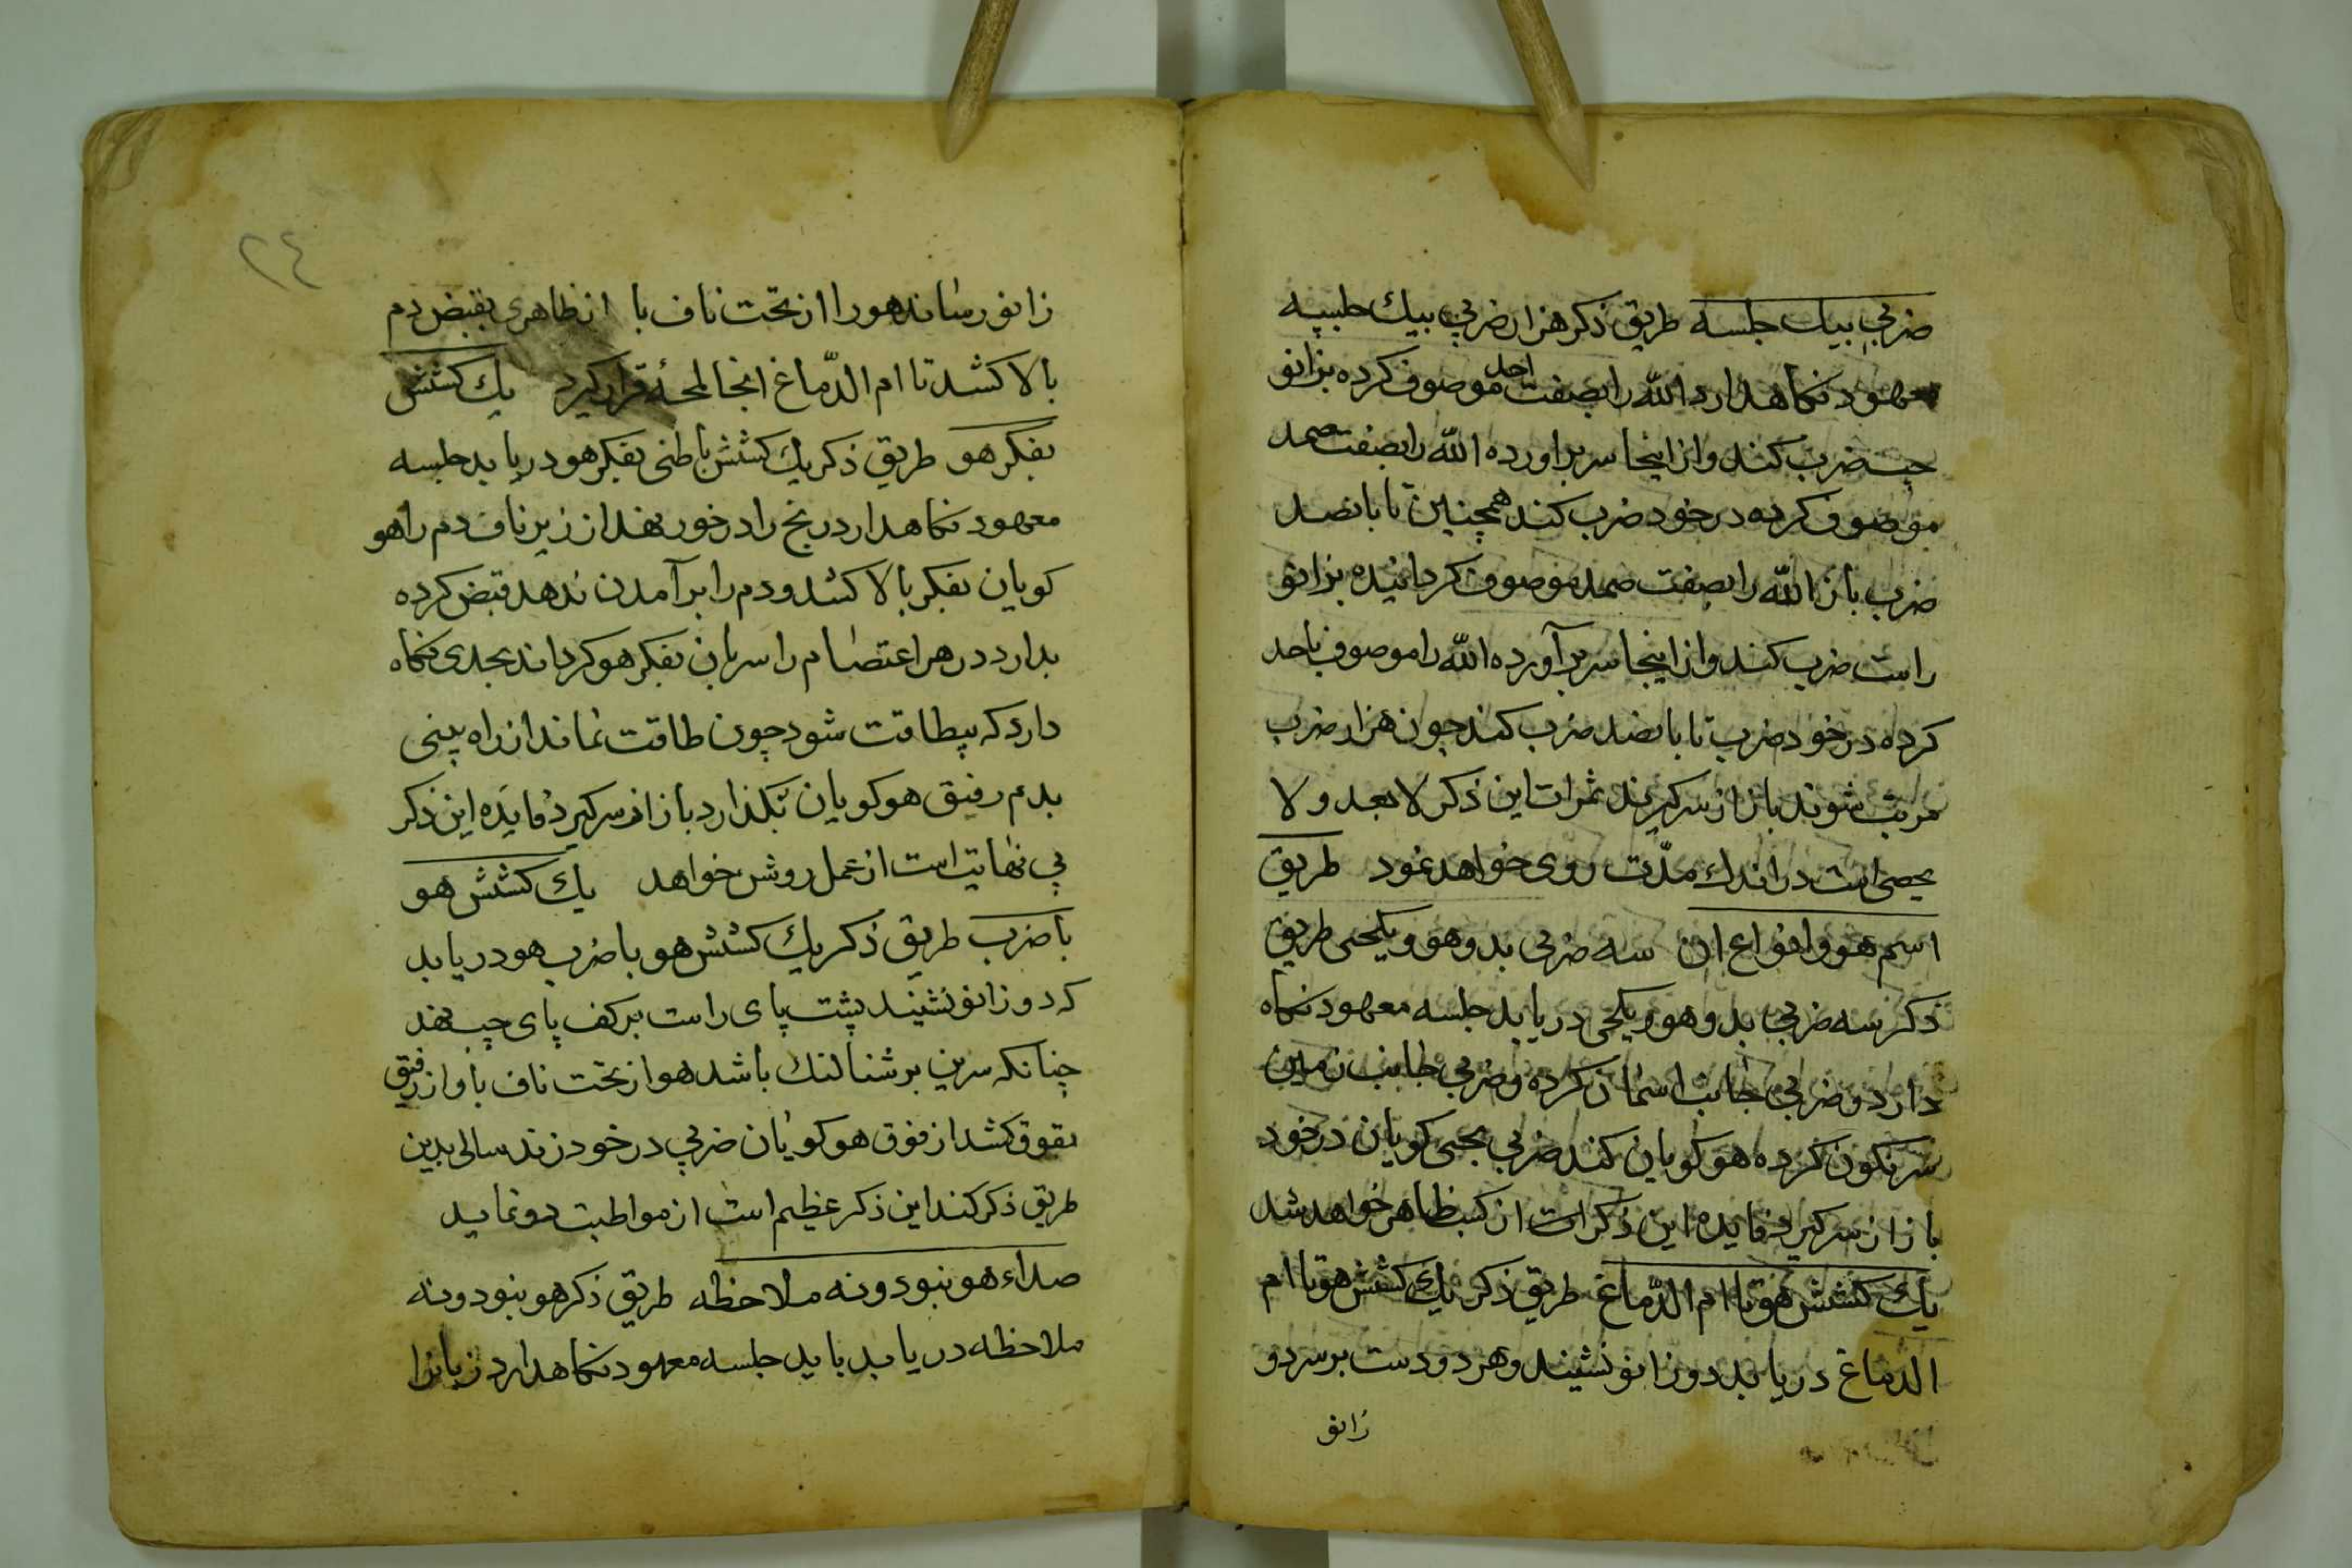 ضربي بيك جلسه طريق ذكر هزار ضربي بيك جلسه
معهود نكاهدارد الله را بصفت احد موصوف كرده بزانو
چپ ضرب كند و از اينجا سر براورده الله را بصفت صمد
موصوف كرده در خود ضرب كند همچنين تا پانصد
ضرب باز الله را بصفت صمد موصوف كردانيده بزانو
راست ضرب كند و از اينجا سر برآورده الله را موصوف باحد
كرده در خود ضرب تا پانصد ضرب كند چون هزار ضرب
مرتب شوند باز از سر كيرند ثمرات اين ذكر لا يعد و لا
يحصى است در اندك مدّت روى خواهد نمود طريق
اسم هو و انواع ان سه ضربي بدوهو و يكحى طريق
ذكر سه ضربي بدو هو و يكحى دريابد جلسه معهود نكاه
دارد و ضربي جانب اسمان كرده و ضربي جانب زمين
سرنكون كرده هو كويان كند ضربي بحى كويان در خود
باز از سر كيرد فايده اين ذكرات از كسب ظاهر خواهد شد
يك كشش هو تا ام الدّماغ طريق ذكر يك كشش هو تا ام
الدماغ دريابد دو زانو نشيند و هر دو دست بر سر دو
زانو
٢٤
زانو رساند هو را از تحت ناف با از ظاهرى بقبض دم
بالا كشد تا ام الدّماغ انجا لمحۀ قرار كيرد يك كشش
بفكر هو طريق ذكر يك كشش باطنى بفكر هو دريابد جلسه
معهود نكاهدارد رنج را در خور نهد از زير ناف دم را هو
كويان بفكر بالا كشد و دم را بر آمدن ندهد قبض كرده
بدارد در هر اعتصام را سريان بفكر هو كرداند بجدى نكاه
دارد كه بيطاقت شود چون طاقت نماند از راه بينى
بدم رفيق هو كويان بكذارد باز از سر كيرد فايده اين ذكر
بي نهايت است از عمل روشن خواهد يك كشش هو
با ضرب طريق ذكر يك كشش هو با ضرب هو دريابد
كه دو زانو نشيند پشت پاى راست بر كف پاى چپ نهد
چنانكه سرين بر شتالنك باشد هو از تحت ناف باواز رقيق
بقوق كشد از فوق هو كويان ضربي در خود زند سالى بدين
طريق ذكر كند اين ذكر عظيم است از مواظبت رو نمايد
صداء هو بنبود و نه ملاحظه طريق ذكر هو بنبود و نه
ملاحظه دريابد بايد جلسه معهود نكاهدارد زبانرا